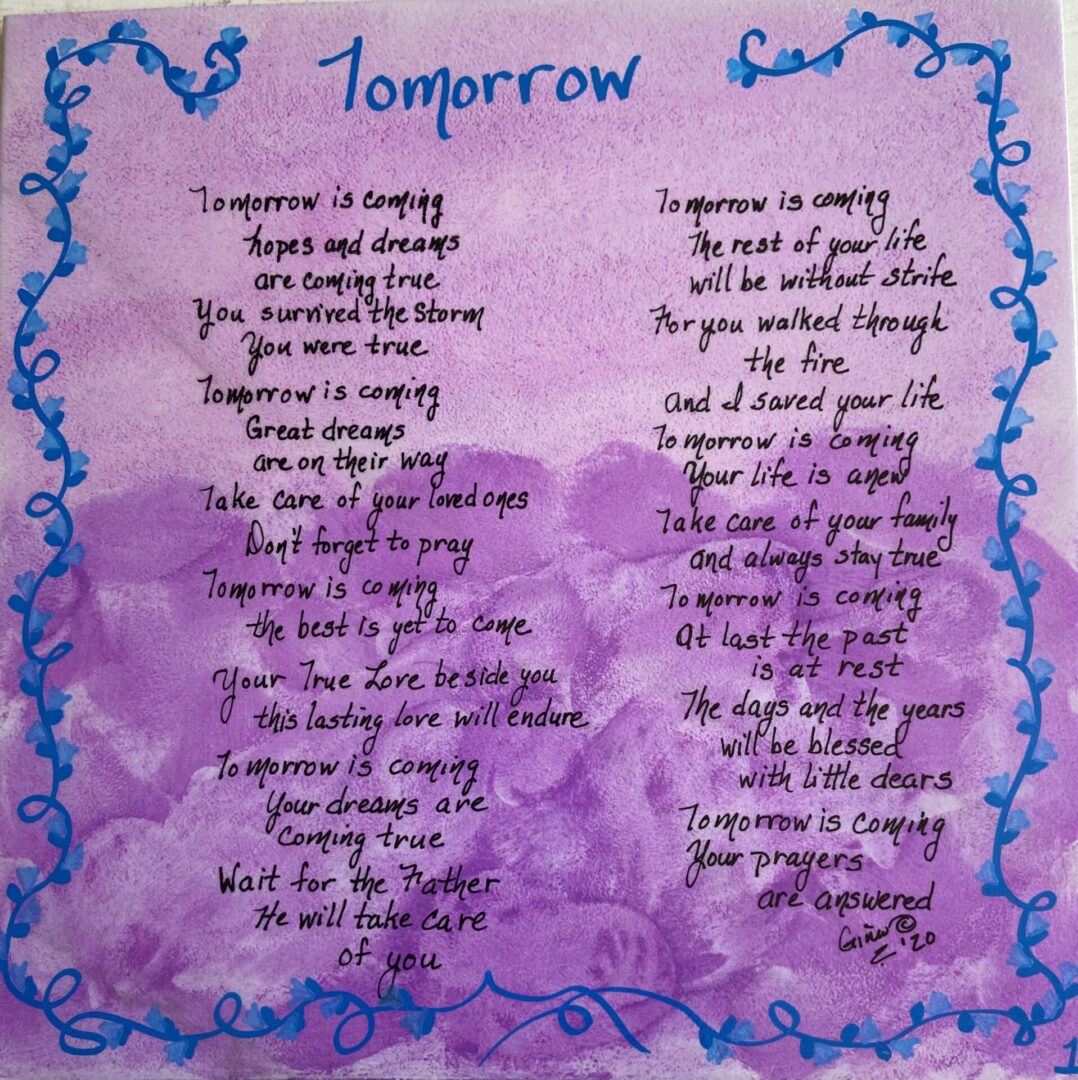 Tomorrow
Tomorrow is coming
hopes and dreams
are coming true
You survived the Storm
You were true
Tomorrow is coming
Great dreams
are on their way
Take care of your loved ones
Don't forget to pray
Tomorrow is coming
the best is yet to come
Your True Love beside you
this lasting love will endure
Tomorrow is coming
Your dreams are
coming true
Wait for the Father
He will take care
of you
Tomorrow is coming
The rest of your life
will be without strife
For you walked through
the fire
and I saved your life
Tomorrow is coming
Your life is anew
Take care of your family
and always stay true
Tomorrow is coming
At last the past
is at rest
The days and the years
will be blessed
with little dears
Tomorrow is coming
Your prayers
are answered
©
'20
1